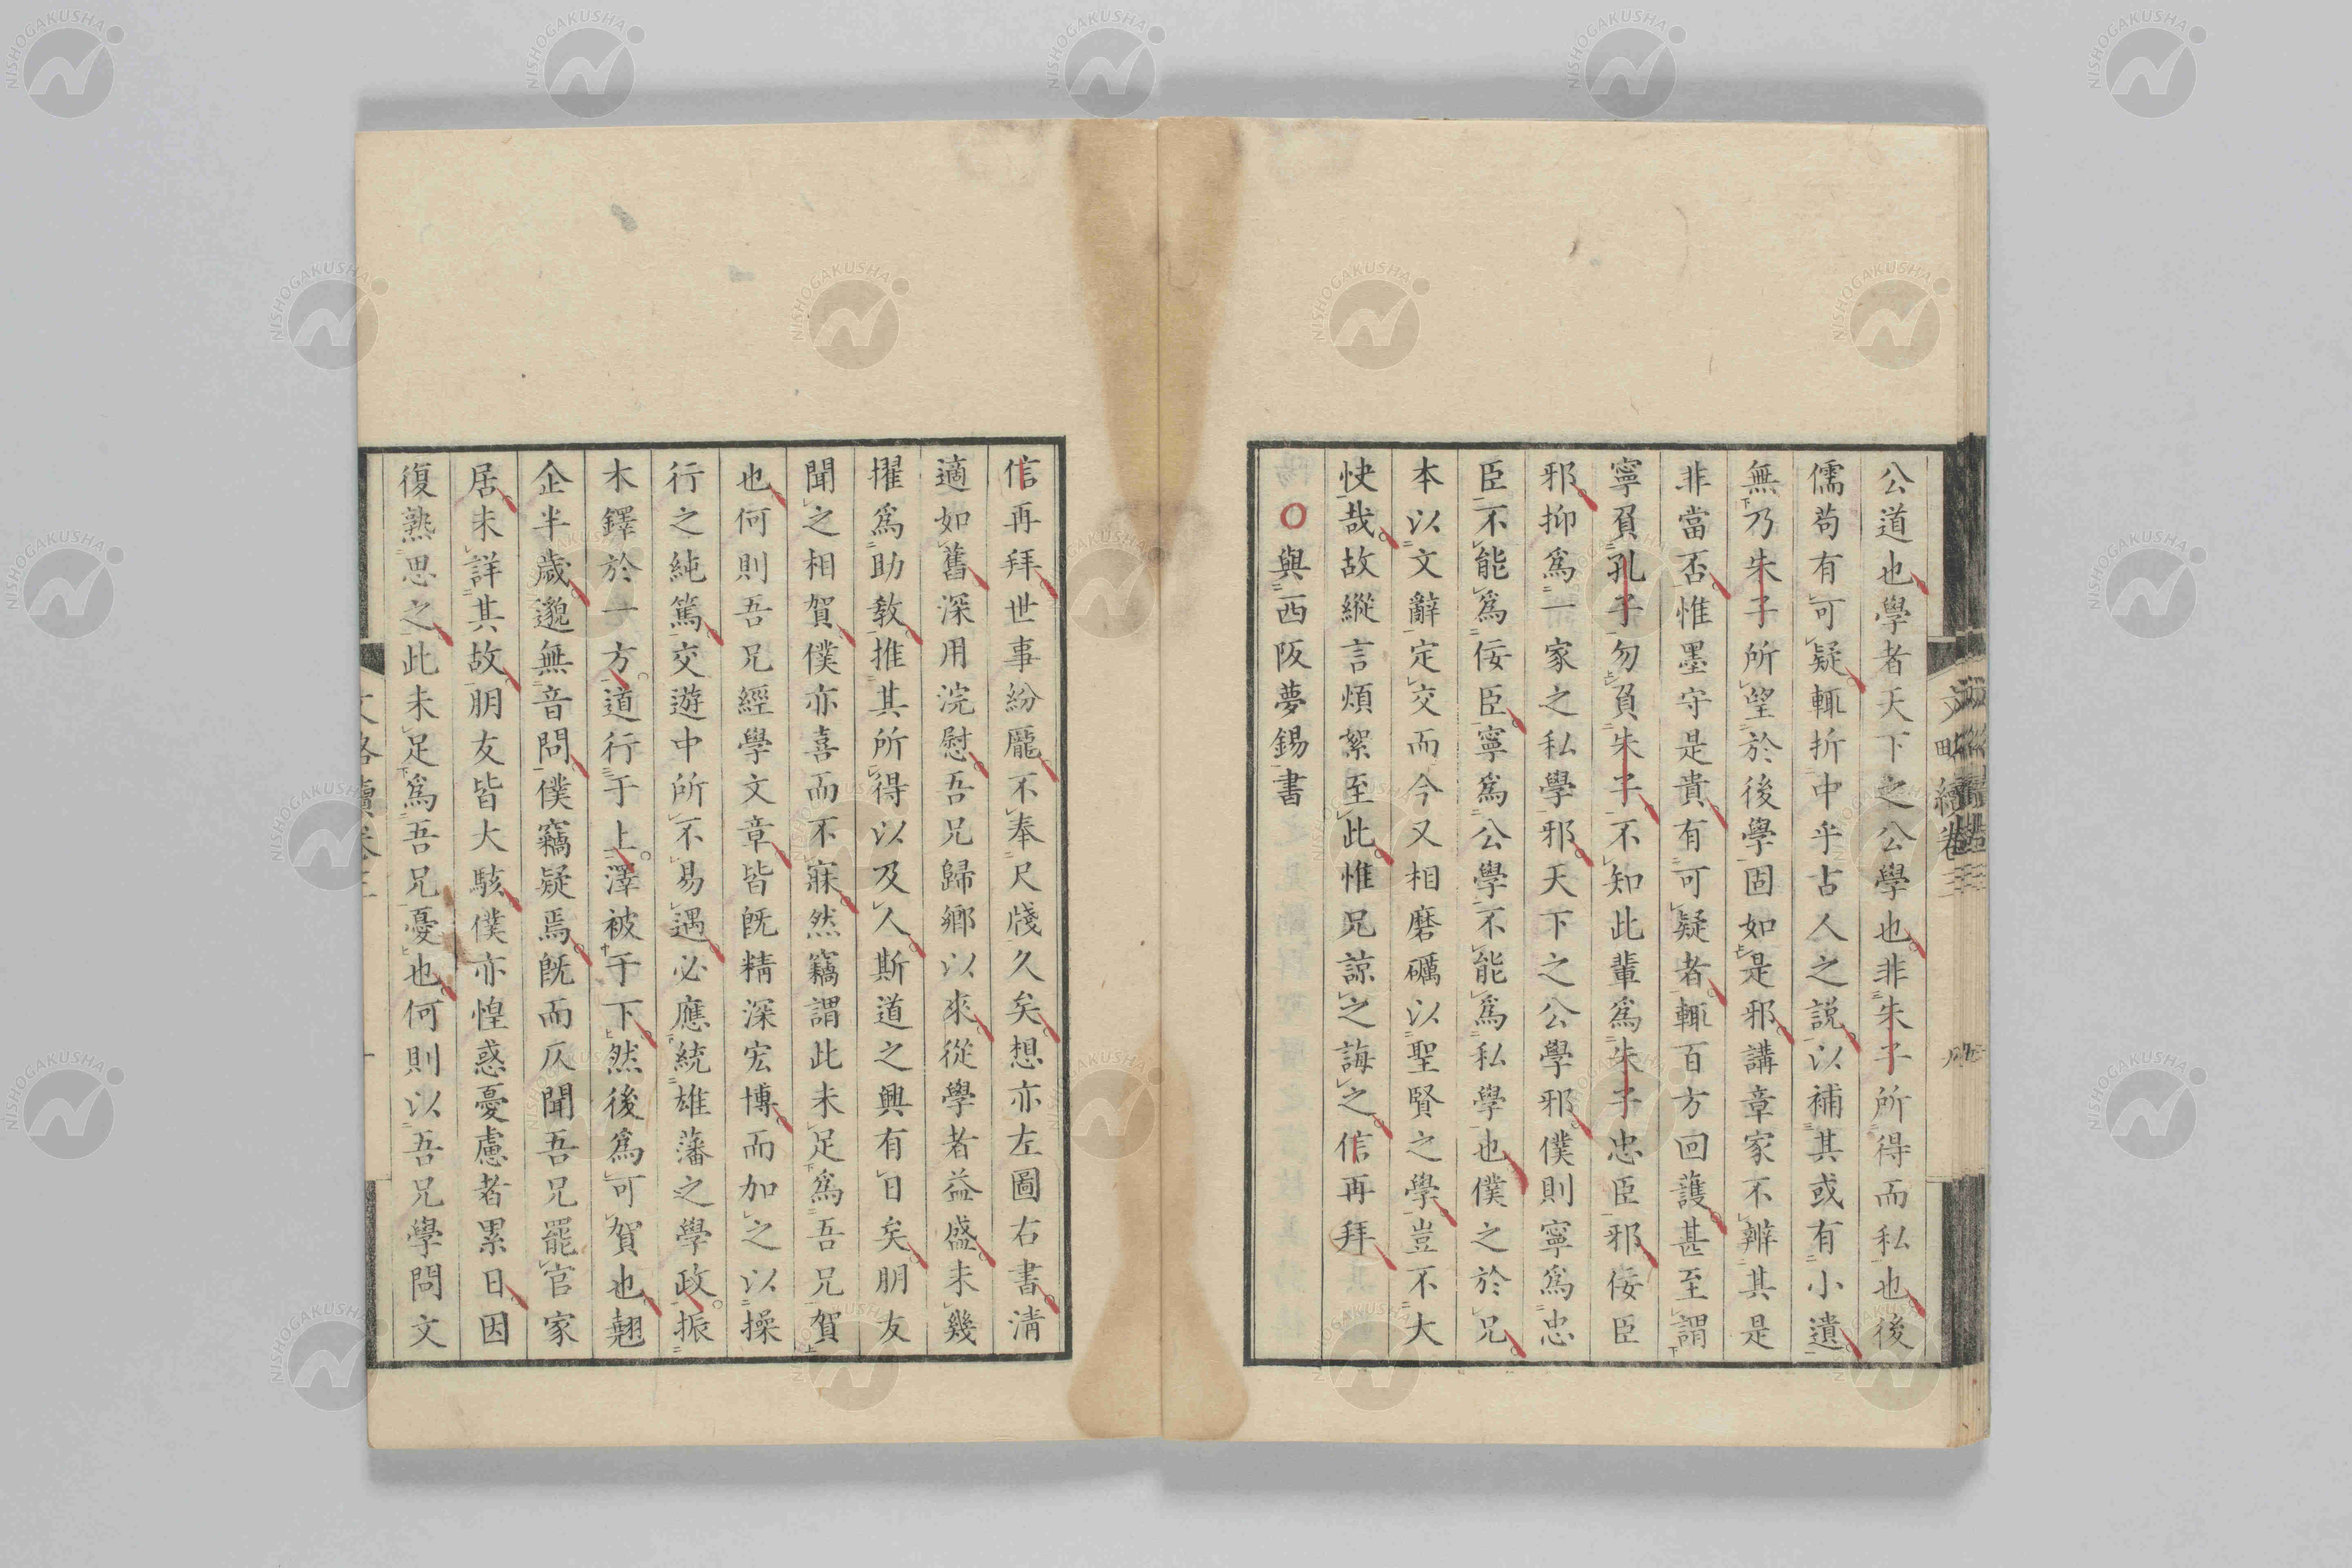 公道也學者天下之公學也非朱子所得而私也後
儒苟有可疑輒折中乎古人之説以補其或有小遺
無乃朱子所望於後學固如是邪講章家不辨其是
非當否惟墨守是貴有可疑者輒百方回護甚至謂
寧負孔子勿負朱子不知此輩爲朱子忠臣邪佞臣
邪抑爲一家之私學邪天下之公學邪僕則寧爲忠
臣不能爲佞臣寧爲公學不能爲私學也僕之於兄
本以文辭定交而今又相磨礪以聖賢之學豈不大
快哉故縱言煩絮至此惟兄諒之誨之信再拜
與西阪夢錫書
信再拜世事紛龐不奉尺牋久矣想亦左圖右書清
適如舊深用浣慰吾兄歸鄉以來從學者益盛未幾
擢爲助教推其所得以及人斯道之興有日矣朋友
聞之相賀僕亦喜而不寐然竊謂此未足爲吾兄賀
也何則吾兄經學文章皆既精深宏博而加之以操
行之純篤交遊中所不易遇必應統雄藩之學政振
木鐸於一方道行于上澤被于下然後爲可賀也翹
企半歲邈無音問僕竊疑焉既而仄聞吾兄罷官家
居未詳其故朋友皆大駭僕亦惶惑憂慮者累日因
復熟思之此未足爲吾兄憂也何則以吾兄學問文